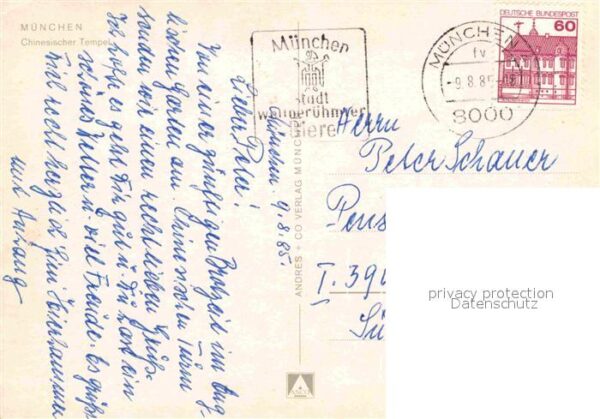 MÜNCHEN
Chinesischer Tempel
München, 9.8.85.
Lieber Peter!
Von einer zünftigen Brotzeit im Eng-
lischen Garten am Chinesischen Turm
senden wir einen recht lieben Gruß.
Ich hoffe es geht Dir gut u. Du hast ein
schönes Wetter u. viel Freude. Es grüßt
Dich recht herzlich
mit Anhang
ANDRES + CO VERLAG MÜNCHEN
München
Stadt
weltberühmter
Biere
MÜNCHEN
fv
-9.8.85
8000
DEUTSCHE BUNDESPOST
60
Herrn
Peter Schauer
Pens
I. 390
Sü
privacy protection
Datenschutz